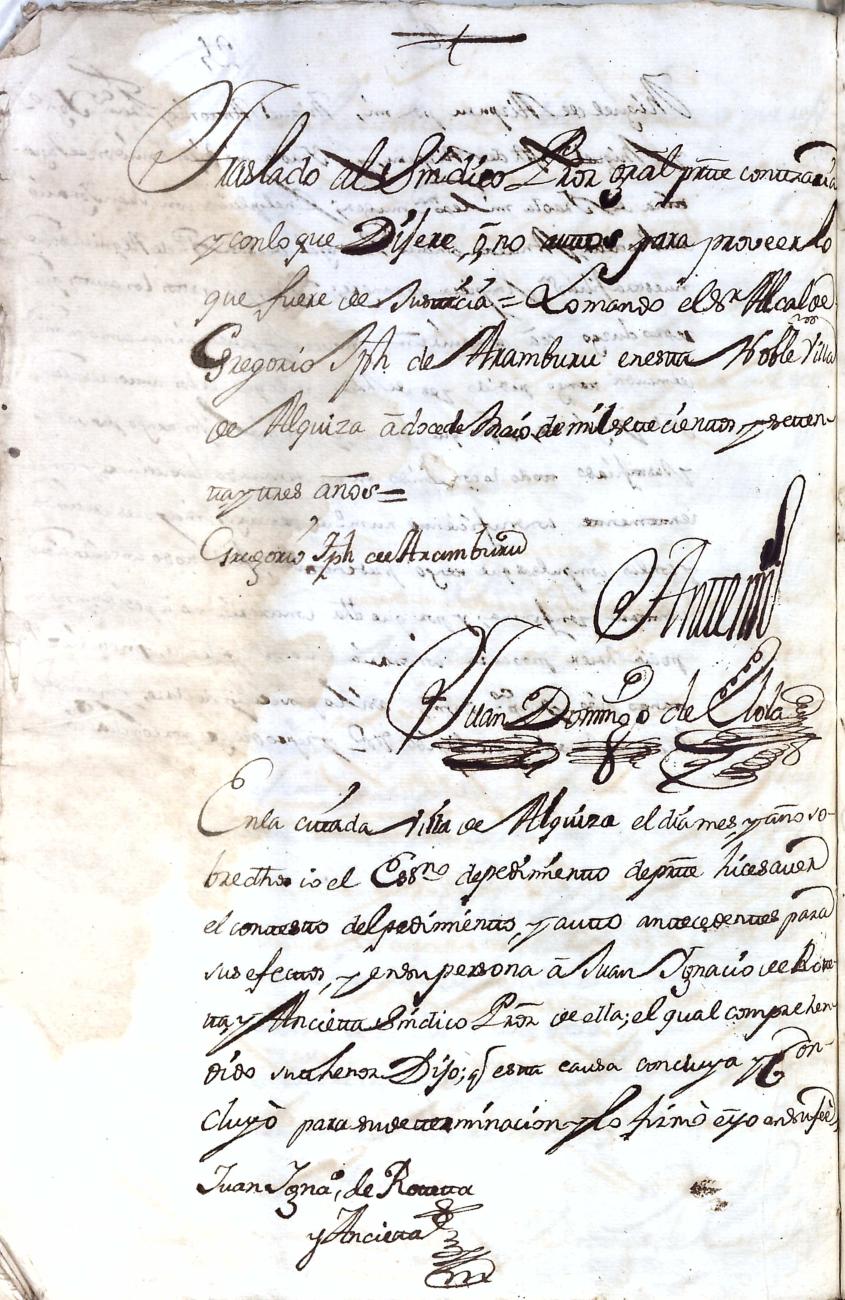 Traslado al Sindico Pror gral prte contraria
y con lo que Dijere, q̃ no auttos para proveer lo
que fuere de Justicia = Lo mando el Sr Alcalde
Gregorio Jph de Aramburu en estta Noble Villa
de Alquiza â doce de Maio de mil sette cienttos, y setten-
tta y ttres años =
Gregorio Jph de Aramburu
Antte mi
Juan Domingo de Elola
En la cittada villa de Alquiza el dia mes, y año so-
bredho io el Essno de pedimientto de prtte hice saver
el contestto del pedimientto, y autto anttecedenttes para
sus efecttos, y en su persona â Juan Ignacio de Rote-
tta y Ancietta Sindico Pror de ella; el qual comprehen-
dido su thenor Dijo; q̃ estta causa concluya y Con-
cluyò para su determinacion y lo firmò è yo en su feè,
Juan Ignaº, de Rotetta
y Ancietta